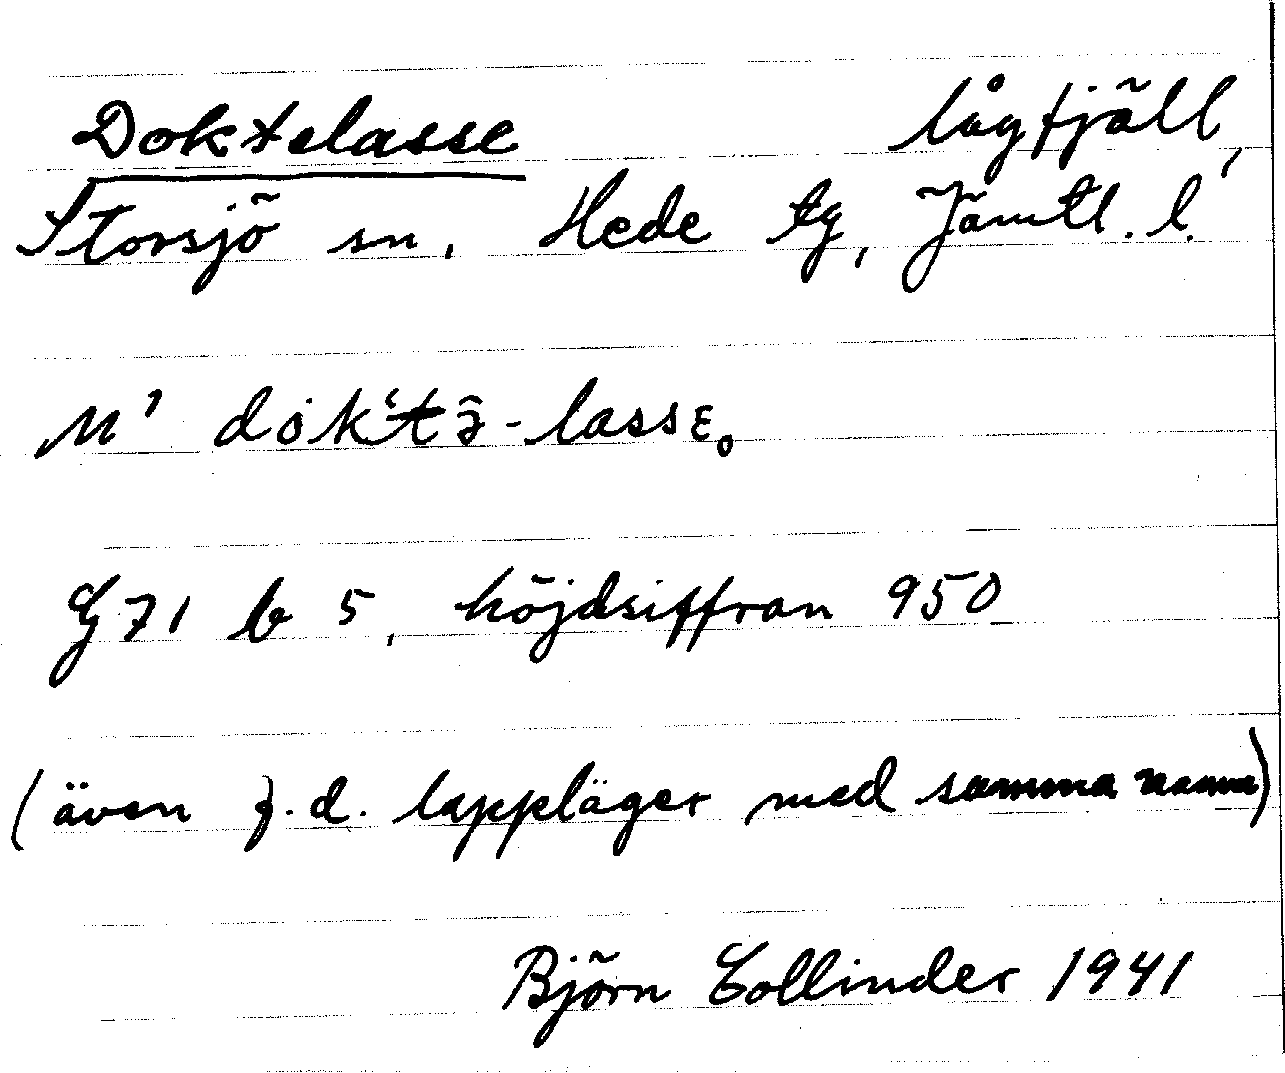 Doktelasse lågfjäll,
Storsjö sn, Hede tg, Jämtl. l.
M' dok'tə̑-lassɛ̥
G 71 b 5, höjdsiffran 950
(även f.d. lappläger med samma namn)
Björn Collinder 1941